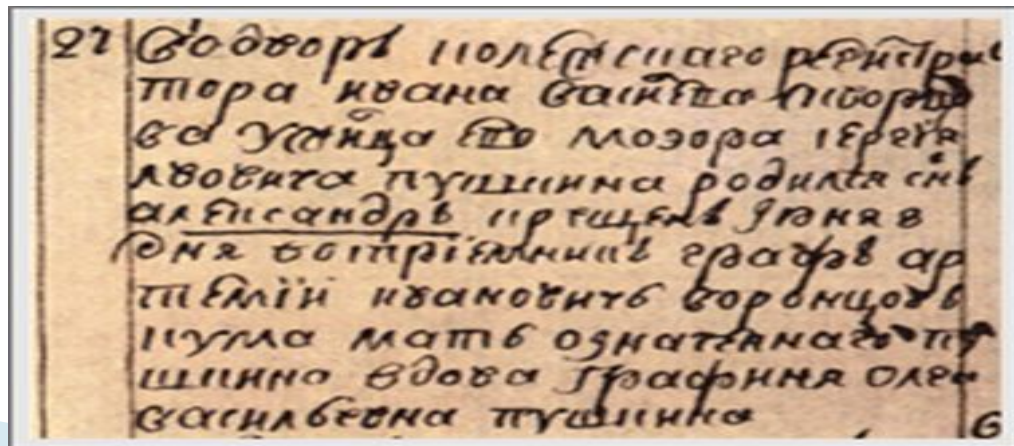 27 Во дворѣ колежскаго регистра
тора ивана васильева скворцо
ва у жильца его моэора сергія
львовича пушкина родился снъ
александръ крещенъ июня 8
дня восприемникъ графъ ар
темій ивановичь воронцовъ
кума мать означеннаго пу
шкина вдова ольга
василъевна пушкина 6